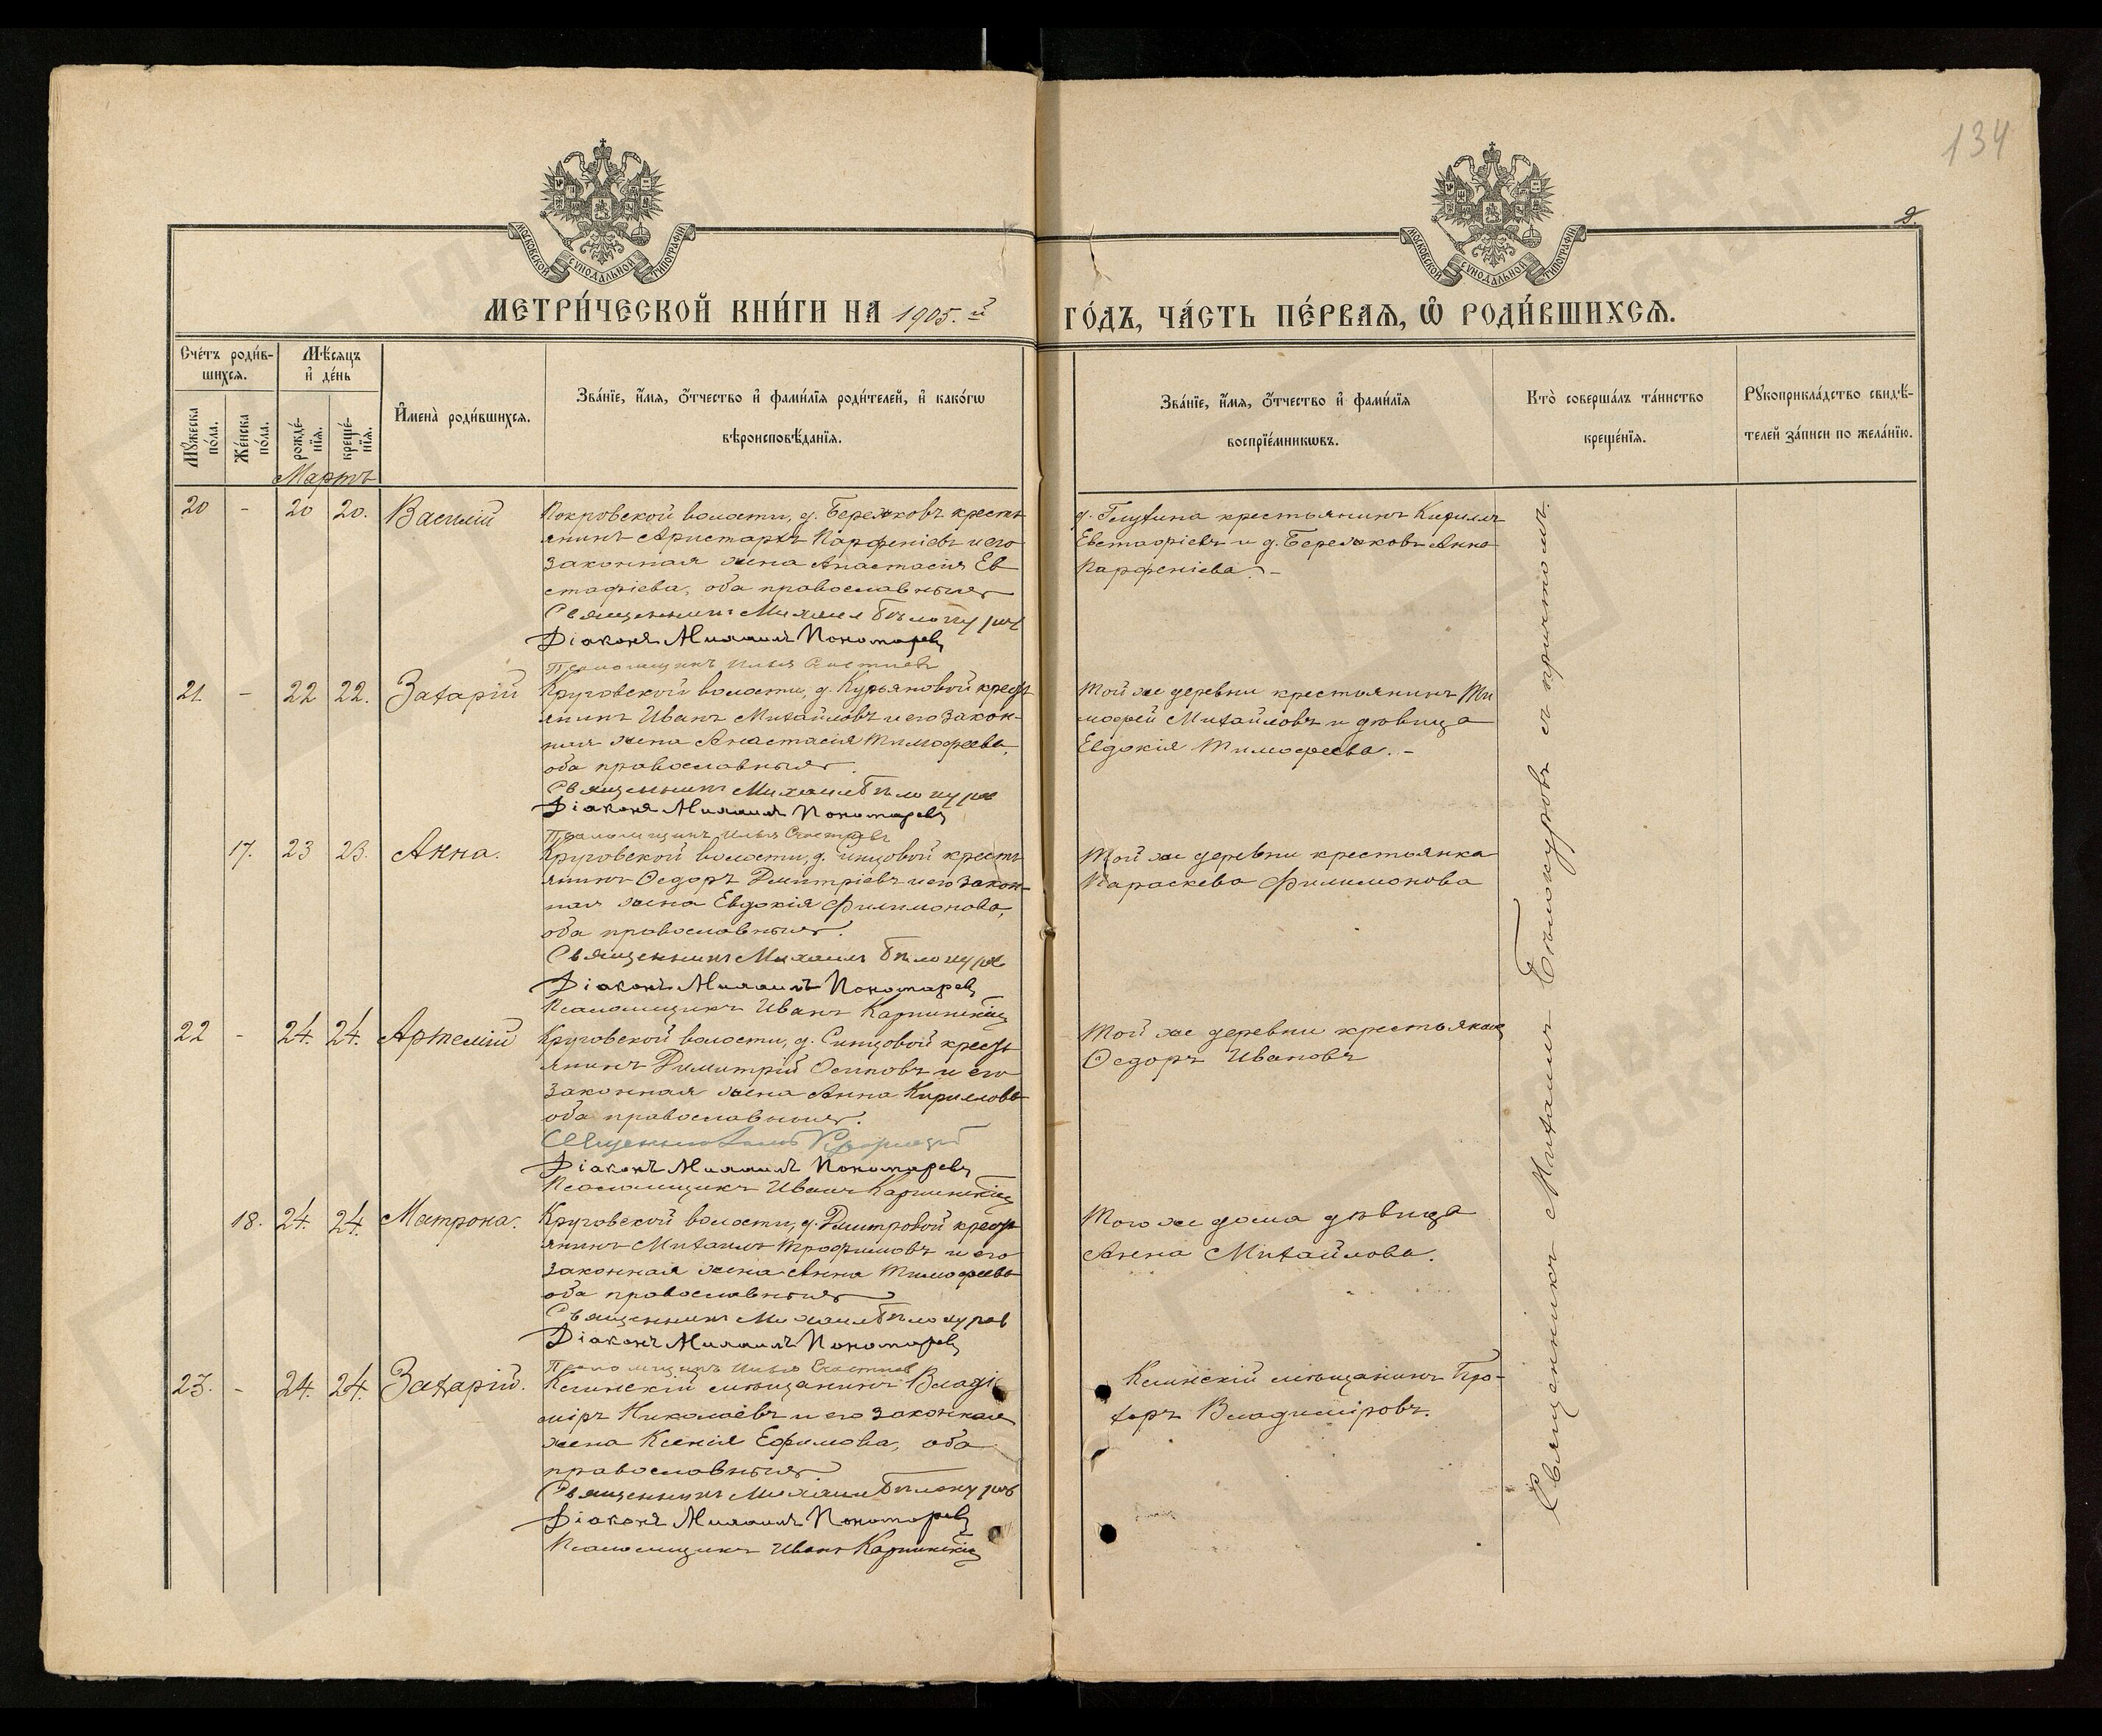 134
9.
МОСКОВСКОЙ СѴНОДАЛЬНОЙ ТИПОГРАФІИ
МОСКОВСКОЙ СѴНОДАЛЬНОЙ ТИПОГРАФІИ
МЕТРИ́ЧЕСКОЙ КНИ́ГИ НА 1905.й ГО́ДЪ, ЧА́СТЬ ПЕ́РВАѦ, Ѡ҆ РОДИ́ВШИХСѦ.
Сче́тъ роди́в-
шихсѧ.
Мꙋ́жеска по́ла.
Же́нска по́ла.
Мѣ́сѧцъ
и҆ де́нь
рожде́-
нїѧ.
креще́-
нїѧ.
И҆мена̀ роди́вшихсѧ.
Зва́нїе, и҆́мѧ, ѻ҆́тчество и҆ фами́лїѧ роди́телей, и҆ како́гѡ
вѣроисповѣ́данїѧ.
Зва́нїе, и҆́мѧ, ѻ҆́тчество и҆ фами́лїѧ
воспрїе́мникѡвъ.
Кто̀ соверша́лъ та́инство
креще́нїѧ.
Рꙋкоприкла́дство свидѣ́-
телей за́писи по жела́нїю.
Мартъ
20 - 20 20. Василій
Покровской волости, д. Бережковъ кресть
янинъ Аристархъ Парфеніевъ и его
законная жена Анастасія Ев
стафіева, оба православные
Священникъ Михаил Бѣлокуров
Діаконъ Михаилъ Пономаревъ
Псаломщикъ Илья Счастневъ
д. Голутина крестьянинъ Кириллъ
Евстафіевъ и д. Бережковъ Анна
Парфеніева. -
21 - 22 22. Захарій
Круговской волости, д. Курьяновой кресть
янинъ Иванъ Михайловъ и его закон-
ная жена Анастасія Тимофеева,
оба православные.
Священникъ Михаил Бѣлокуров
Діаконъ Михаилъ Пономаревъ
Псаломщикъ Илья Счастневъ
Той же деревни крестьянинъ Ти
мофей Михайловъ и дѣвица
Евдокія Тимофеева. -
17. 23 23. Анна.
Круговской волости, д. Синцовой кресть
янинъ Ѳедоръ Дмитріевъ и его закон-
ная жена Евдокія Филимонова,
оба православные.
Священникъ Михаилъ Бѣлокуров
Діаконъ Михаилъ Пономаревъ
Псаломщикъ Иванъ Карпинскій
Той же деревни крестьянка
Параскева Филимонова
22 - 24. 24. Артемій
Круговской волости, д. Синцовой кресть
янинъ Димитрій Осиповъ и его
законная жена Анна Кириллова
оба православные.
Діаконъ Михаилъ Пономаревъ
Псаломщикъ Иванъ Карпинскій
Той же деревни крестьянин
Ѳедоръ Ивановъ
18. 24. 24. Матрона.
Круговской волости, д. Дмитровой кресть
янинъ Михаилъ Трофимовъ и его
законная жена Анна Тимофеева
оба православные
Священникъ Михаил Бѣлокуров
Діаконъ Михаилъ Пономаревъ
Псаломщикъ Илья Счастневъ
Того же дома дѣвица
Анна Михайлова.
23. - 24. 24. Захарій.
Клинскій мѣщанинъ Влади
міръ Николаевъ и его законная
жена Ксенія Ефимова, оба
православные.
Священникъ Михаил Бѣлокуров
Діаконъ Михаилъ Пономаревъ
Псаломщикъ Иванъ Карпинскій
Клинскій мѣщанинъ Про-
хоръ Владиміровъ.
Священникъ Михаилъ Бѣлокуровъ съ причтомъ.
ГЛАВАРХИВ
МОСКВЫ